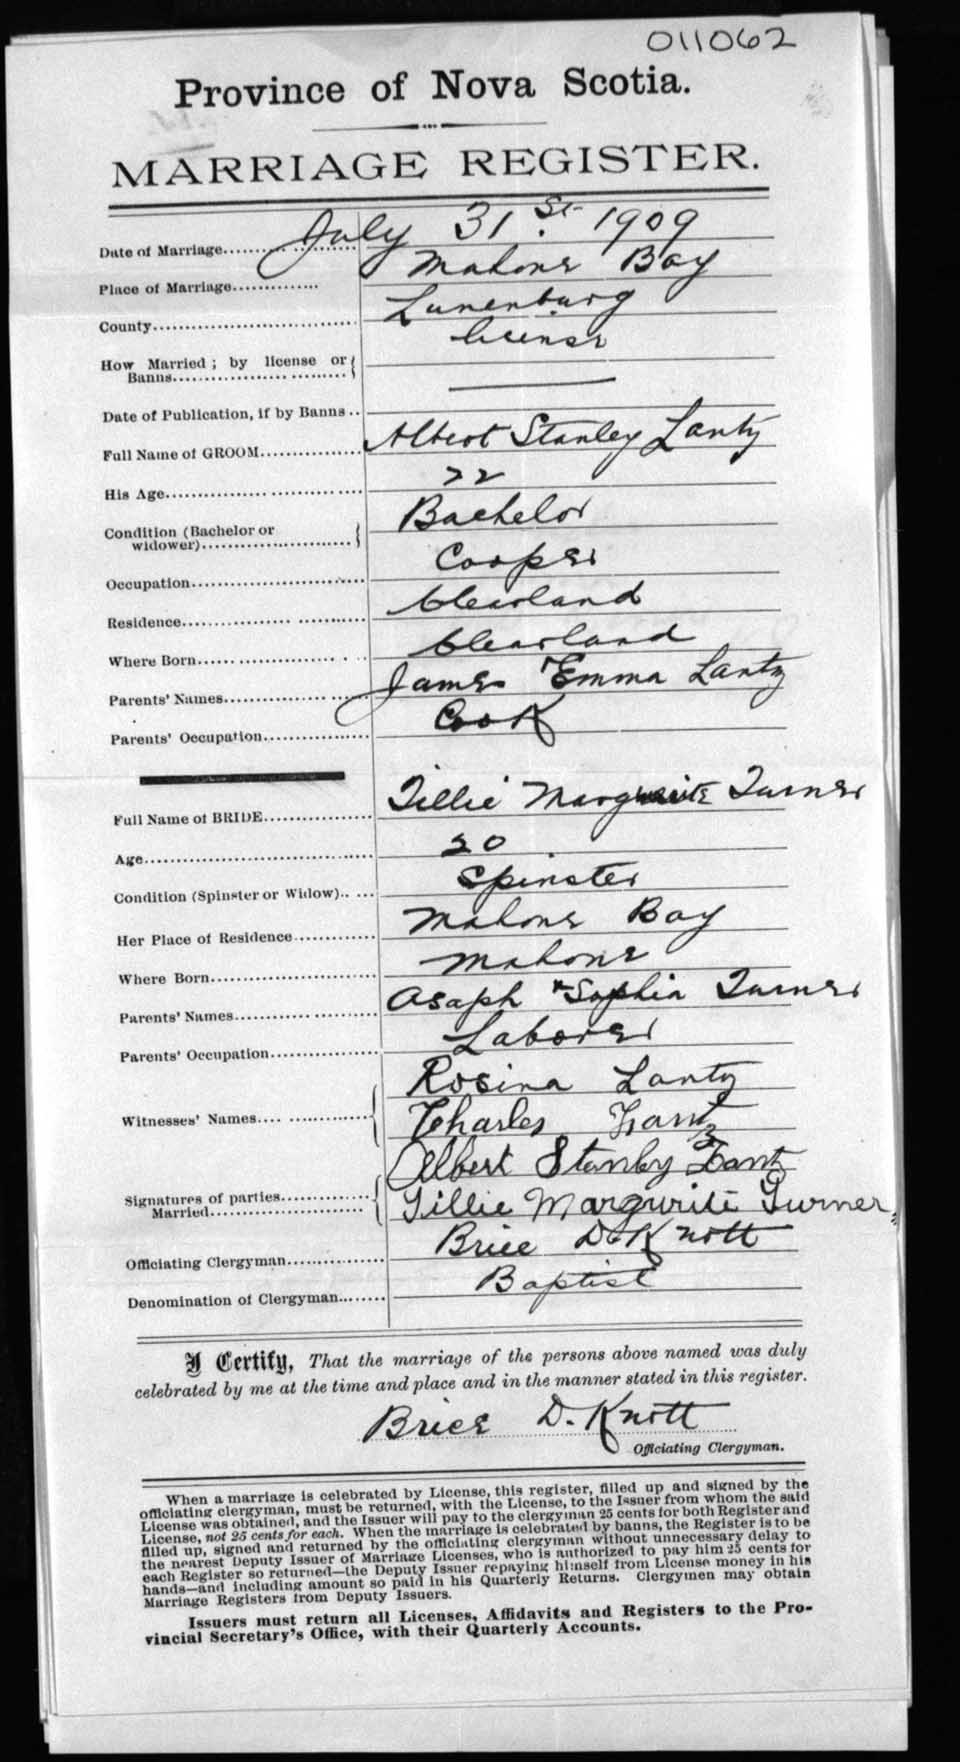 011062
Province of Nova Scotia.
MARRIAGE REGISTER.
Date of Marriage July 31 St. 1909
Place of Marriage Mahone Bay
County Lunenburg
How Married ; by license or
Banns license
Date of Publication, if by Banns
Full Name of GROOM Albert Stanley Lantz
His Age 22
Condition (Bachelor or
widower) Bachelor
Occupation Cooper
Residence Clearland
Where Born Clearland
Parents' Names James Emma Lantz
Parents' Occupation Cook
Full Name of BRIDE Tillie Marguerite Turner
Age 20
Condition (Spinster or Widow) Spinster
Her Place of Residence Mahone Bay
Where Born Mahone
Parents' Names Asaph & Sophia Turner
Parents' Occupation Laborer
Rosina Lantz
Witnesses' Names Charles Lantz
Albert Stanley Lantz
Signatures of parties
Married Tillie Margurite Turner
Officiating Clergyman Brice D. Knott
Denomination of Clergyman Baptist
I Certify, That the marriage of the persons above named was duly
celebrated by me at the time and place and in the manner stated in this register.
Brice D. Knott
Officiating Clergyman.
When a marriage is celebrated by License, this register, filled up and signed by the
officiating clergyman, must be returned, with the License, to the Issuer from whom the said
License was obtained, and the Issuer will pay to the clergyman 25 cents for both Register and
License, not 25 cents for each. When the marriage is celebrated by banns, the Register is to be
filled up, signed and returned by the officiating clergyman without unnecessary delay to
the nearest Deputy Issuer of Marriage Licenses, who is authorized to pay him 25 cents for
each Register so returned—the Deputy Issuer repaying himself from License money in his
hands—and including amount so paid in his Quarterly Returns. Clergymen may obtain
Marriage Registers from Deputy Issuers.
Issuers must return all Licenses, Affidavits and Registers to the Pro-
vincial Secretary's Office, with their Quarterly Accounts.